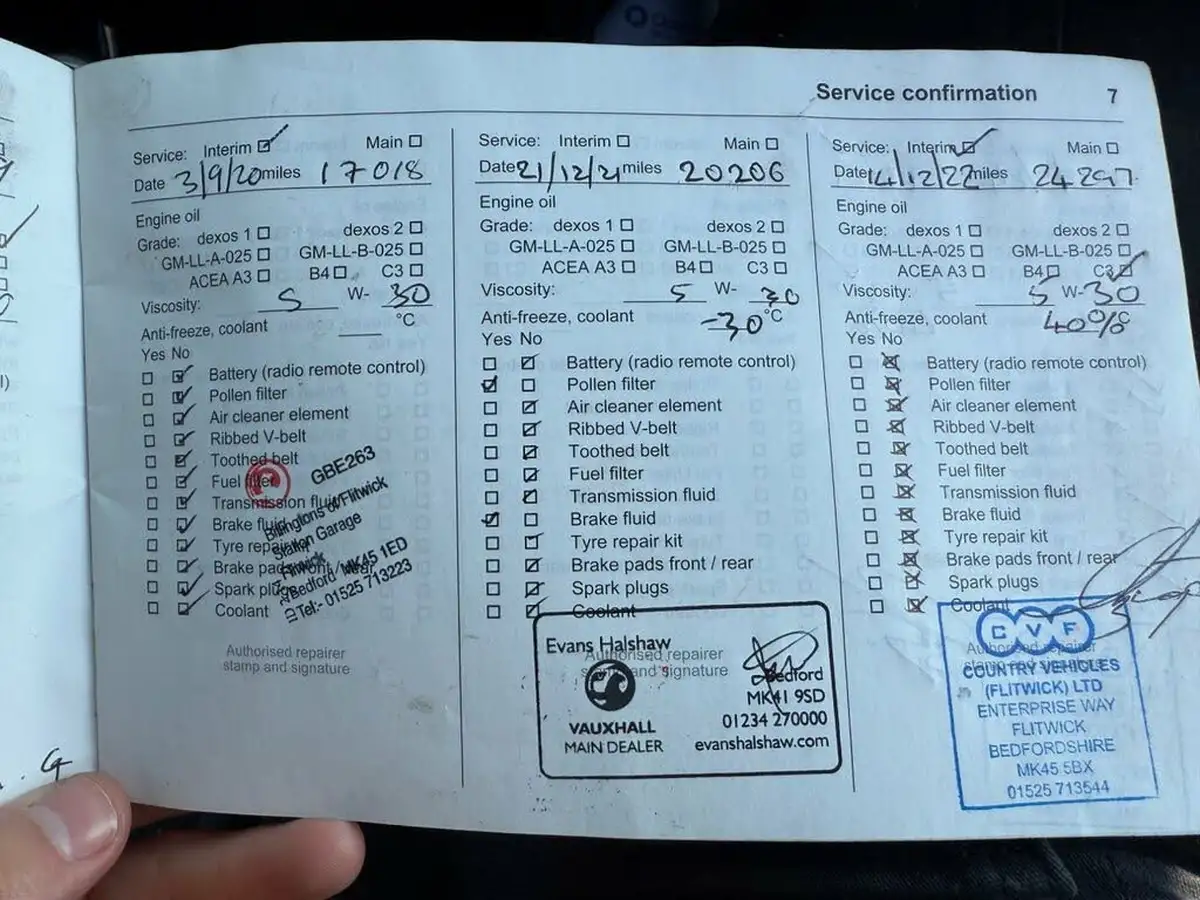 Service confirmation 7
Service: Interim Main
Date 3/9/20 miles 17018
Engine oil
Grade: dexos 1 dexos 2
GM-LL-A-025 GM-LL-B-025
ACEA A3 B4 C3
Viscosity: 5 W- 30
Anti-freeze, coolant °C
Yes No
Battery (radio remote control)
Pollen filter
Air cleaner element
Ribbed V-belt
Toothed belt
Fuel filter
Transmission fluid
Brake fluid
Tyre repair kit
Brake pads front / rear
Spark plugs
Coolant
GBE263
Billingtons of Flitwick
Station Garage
Flitwick
Bedford MK45 1ED
Tel:- 01525 713223
Authorised repairer
stamp and signature
Service: Interim Main
Date 21/12/21 miles 20206
Engine oil
Grade: dexos 1 dexos 2
GM-LL-A-025 GM-LL-B-025
ACEA A3 B4 C3
Viscosity: 5 W- 30
Anti-freeze, coolant -30 °C
Yes No
Battery (radio remote control)
Pollen filter
Air cleaner element
Ribbed V-belt
Toothed belt
Fuel filter
Transmission fluid
Brake fluid
Tyre repair kit
Brake pads front / rear
Spark plugs
Coolant
Evans Halshaw
Authorised repairer
stamp and signature
Bedford
MK41 9SD
01234 270000
evanshalshaw.com
VAUXHALL
MAIN DEALER
Service: Interim Main
Date 14/12/22 miles 24297
Engine oil
Grade: dexos 1 dexos 2
GM-LL-A-025 GM-LL-B-025
ACEA A3 B4 C3
Viscosity: 5 W- 30
Anti-freeze, coolant 40% °C
Yes No
Battery (radio remote control)
Pollen filter
Air cleaner element
Ribbed V-belt
Toothed belt
Fuel filter
Transmission fluid
Brake fluid
Tyre repair kit
Brake pads front / rear
Spark plugs
Coolant
CVF
Authorised repairer
stamp and signature
COUNTRY VEHICLES
(FLITWICK) LTD
ENTERPRISE WAY
FLITWICK
BEDFORDSHIRE
MK45 5BX
01525 713544